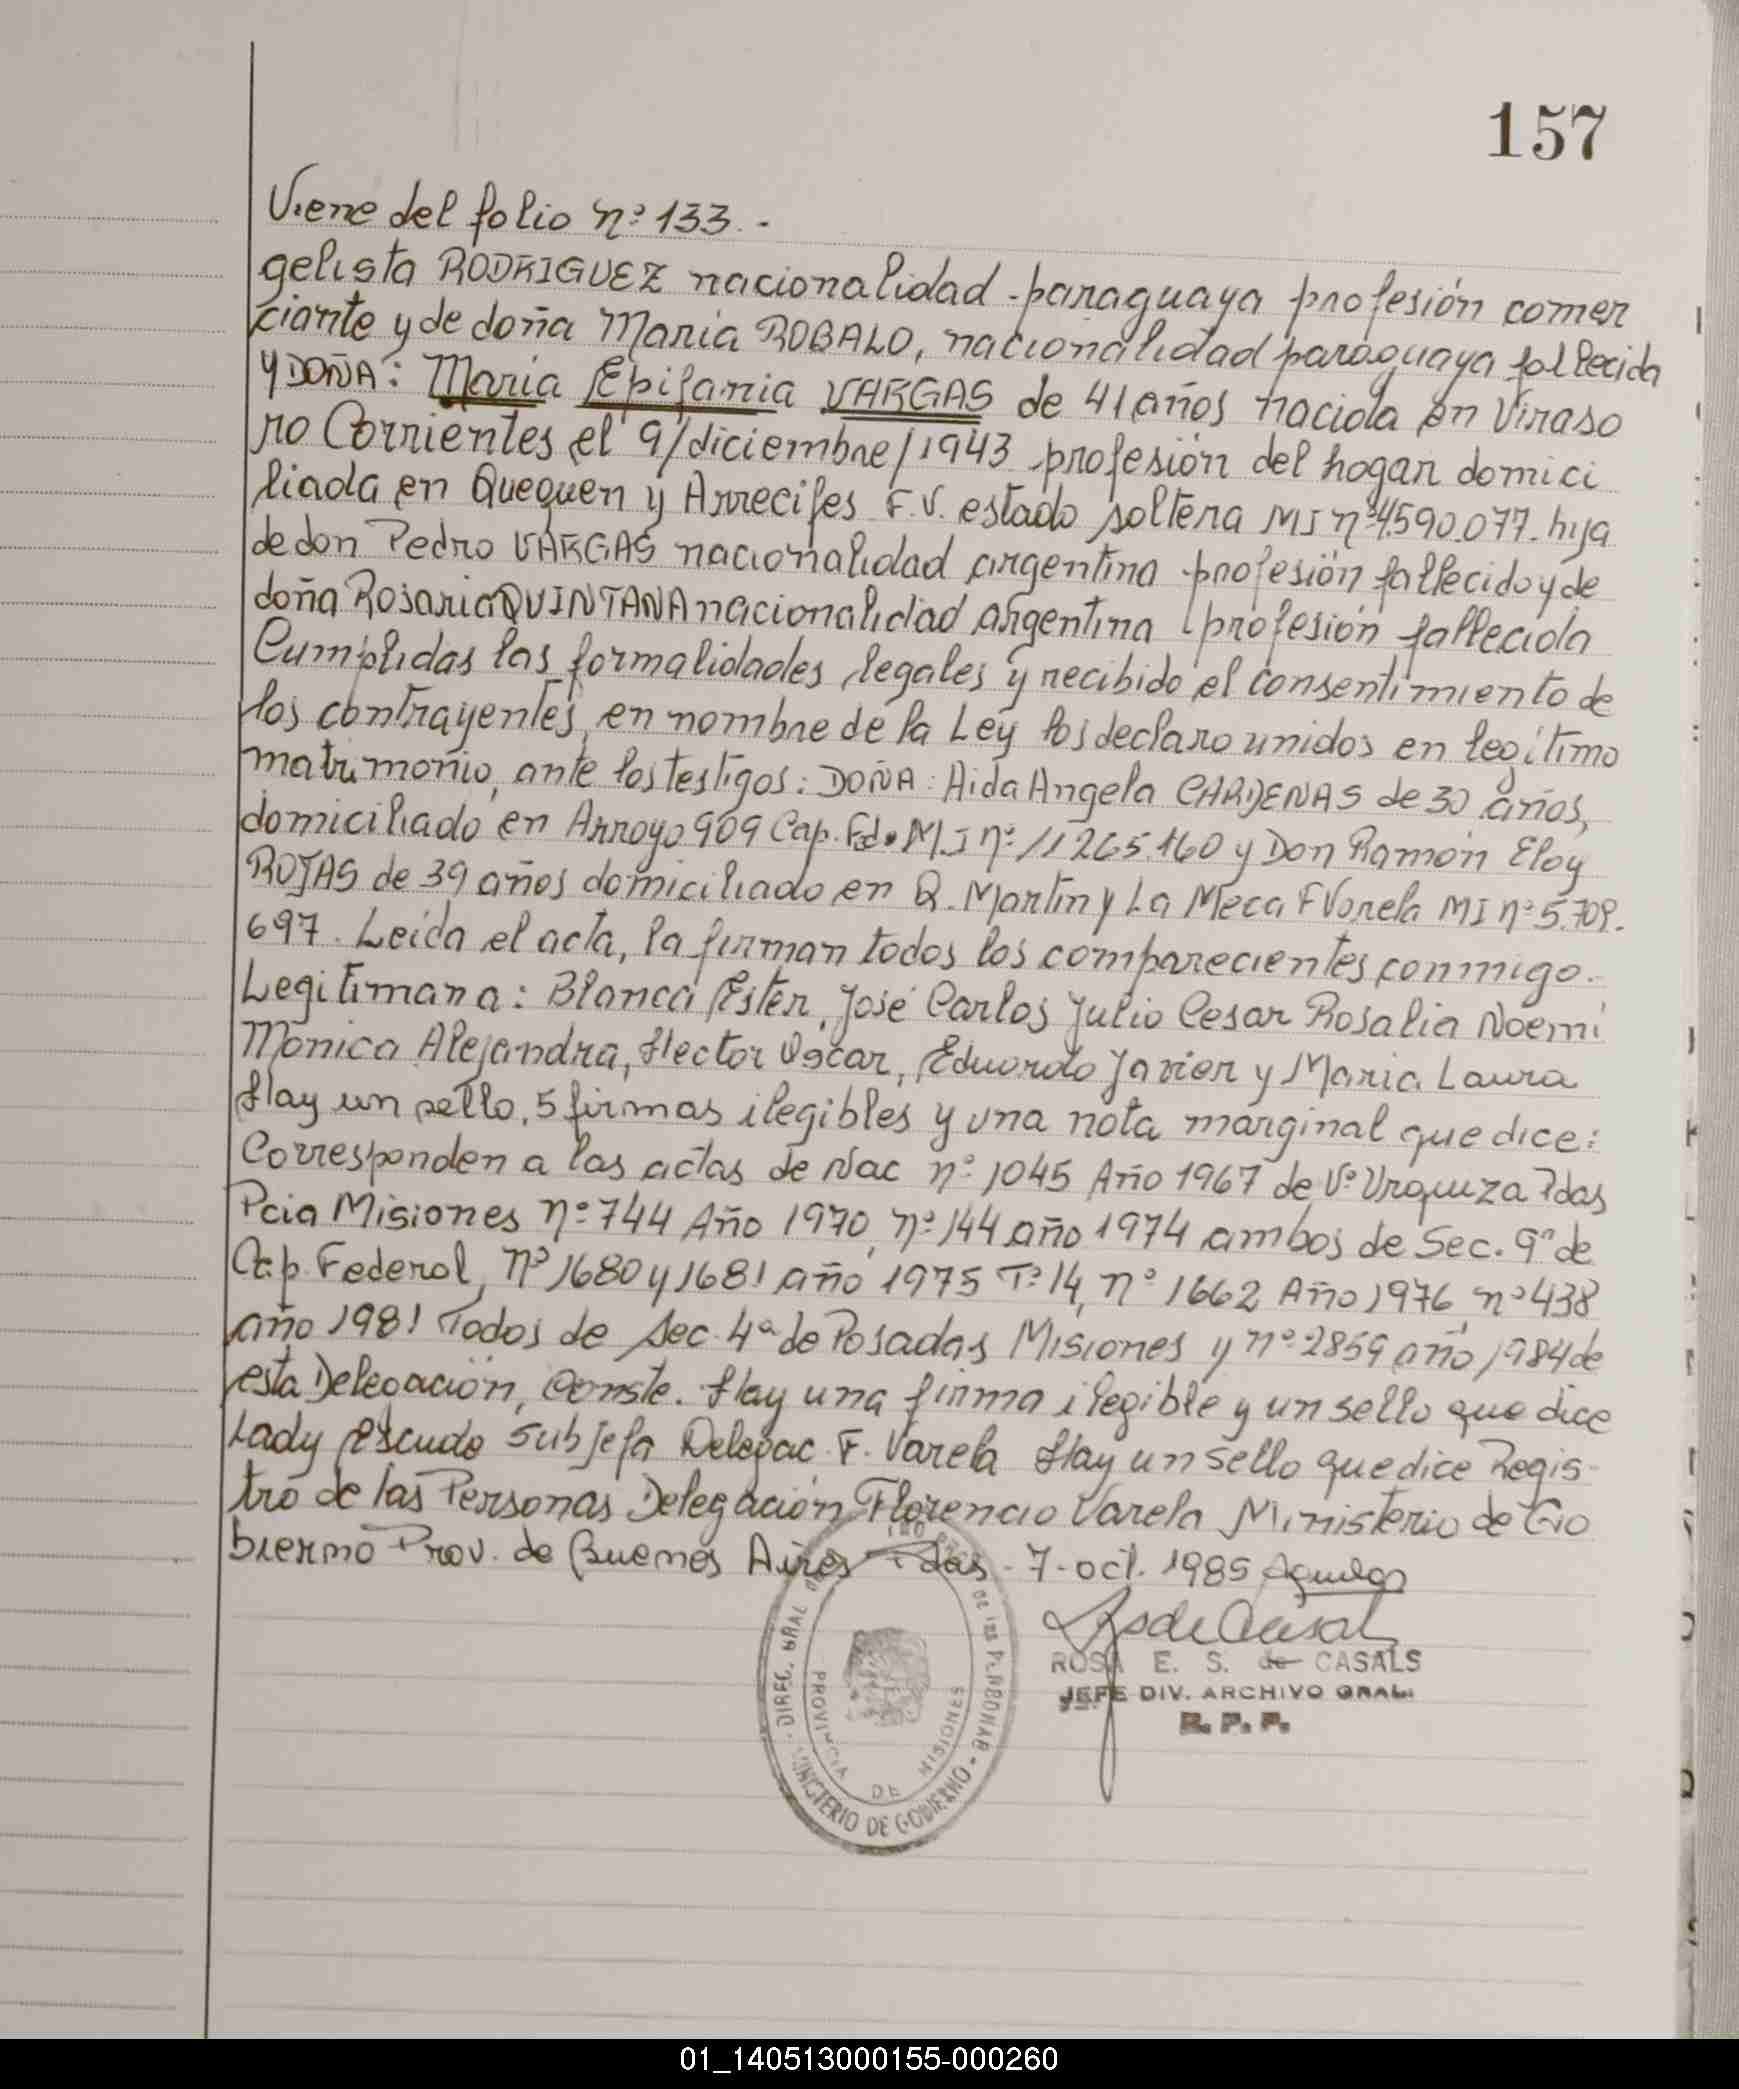 157
Viene del folio nº 133.-
gelista RODRIGUEZ nacionalidad paraguaya profesión comer
ciante y de doña Maria ROBALO, nacionalidad paraguaya fallecida
Y DOÑA: Maria Epifania VARGAS de 41 años nacida en Viraso
ro Corrientes el 9/diciembre/1943 profesión del hogar domici
liada en Quequen y Arrecifes F.V. estado soltera MI nº 4.590.077. hija
de don Pedro VARGAS nacionalidad argentina profesión fallecido y de
doña Rosaria QUINTANA nacionalidad argentina profesión fallecida
Cumplidas las formalidades legales y recibido el consentimiento de
los contrayentes, en nombre de la Ley los declaro unidos en legítimo
matrimonio, ante los testigos: DOÑA: Aida Angela CARDENAS de 30 años,
domiciliado en Arroyo 909 Cap. Fed. M.I nº 11265.160 y Don Ramón Eloy
ROJAS de 39 años domiciliado en Q. Martin y La Meca F Varela MI nº 5.709.
697. Leída el acta, la firman todos los comparecientes conmigo.-
Legitiman a: Blanca Ester, José Carlos Julio Cesar Rosalia Noemi
Monica Alejandra, Hector Oscar, Eduardo Javier y Maria Laura
Hay un sello, 5 firmas ilegibles y una nota marginal que dice:
Corresponden a las actas de Nac nº 1045 Año 1967 de Vº Urquiza Pdas
Pcia Misiones nº 744 Año 1970, nº 144 año 1974 ambos de Sec. 9ª de
Cap. Federal, nº 1680 y 1681 año 1975 Tº 14, nº 1662 Año 1976, nº 438
año 1981 Todos de Sec. 4ª de Posadas Misiones y nº 2859 año 1984 de
esta Delegación, Conste. Hay una firma ilegible y un sello que dice
Lady Escudo Subjefa Delegac. F. Varela Hay un sello que dice Regis-
tro de las Personas Delegación Florencio Varela Ministerio de Go
bierno Prov. de Buenos Aires Pdas - 7 - oct. 1985
ROSA E. S. de CASALS
JEFE DIV. ARCHIVO GRAL.
R. P. P.
DIREC. GRAL DE LAS PERSONAS
PROVINCIA DE MISIONES
MINISTERIO DE GOBIERNO
01_140513000155-000260